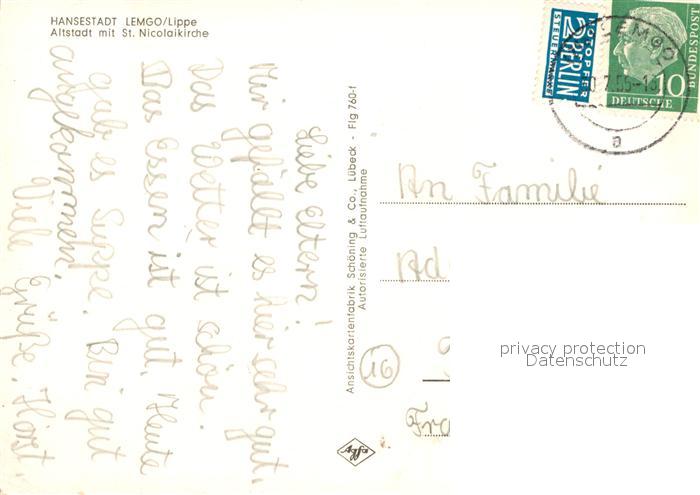 HANSESTADT LEMGO/Lippe
Altstadt mit St. Nicolaikirche
Liebe Eltern!
Mir gefällt es hier sehr gut.
Das Wetter ist schön.
Das Essen ist gut. Heute
gab es Suppe. Bin gut
angekommen.
Viele Grüße. Horst
Ansichtskartenfabrik Schöning & Co., Lübeck - Flg 760-f
Autorisierte Luftaufnahme
Agfa
NOTOPFER
2 BERLIN
STEUERMARKE
DEUTSCHE
BUNDESPOST
10
LEMGO
a
An Familie
Ad
16
Fra
privacy protection
Datenschutz